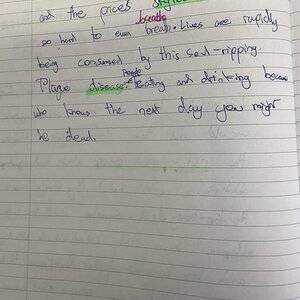 and the prices
breathe
so hard to even breath. Lives are rapidly
being consumed by this soul-ripping
People
Plague disease. eating and drinking because
who knows the next day you might
be dead.